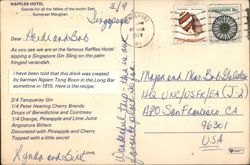 RAFFLES HOTEL
Stands for all the fables of the exotic East
Somerset Maugham
Singapore
3/9
Dear
As you see we are at the famous Raffles Hotel
sipping a Singapore Gin Sling on the palm
fringed verandah.
I have been told that this drink was created
by a barman Ngiam Tong Boon in the Long Bar
sometime in 1915. Here is the recipe:
2/4 Tanqueray Gin
1/4 Peter Heering Cherry Brandy
Drops of Benedictine and Cointreau
1/4 Orange, Pineapple and Lime Juice
Angostura Bitters
Decorated with Pineapple and Cherry
Topped with a little secret
and Bill
SINGAPORE
Major and Mrs Bob
HQ UNC/USFK/EA (J-2)
APO San Francisco CA
96301
USA